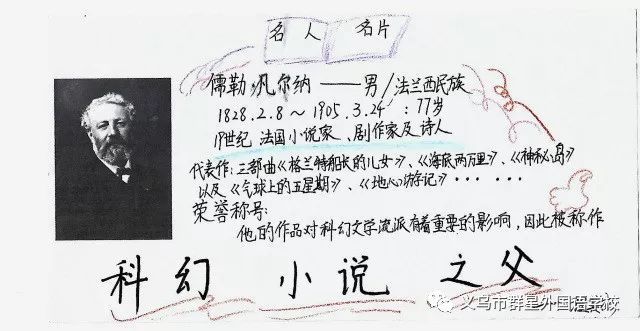 名人 名片
儒勒·凡尔纳——男/法兰西民族
1828.2.8～1905.3.24：77岁
19世纪 法国小说家、剧作家及诗人
代表作:三部曲《格兰特船长的儿女》、《海底两万里》、《神秘岛》
以及《气球上的五星期》、《地心游记》……
荣誉称号:
他的作品对科幻文学流派有着重要的影响,因此被称作
科幻 小说 之父
义乌市群星外国语学校